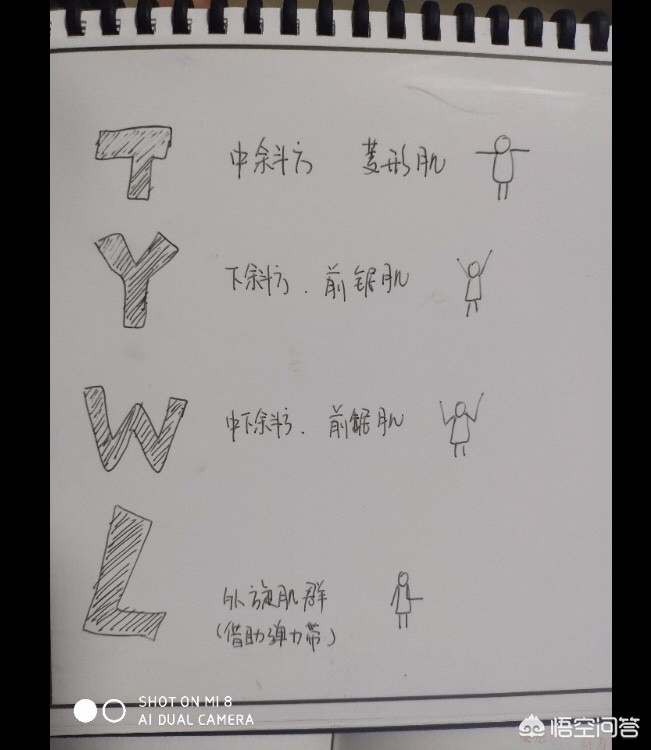 T 中斜方 菱形肌
Y 下斜方.前锯肌
W 中下斜方.前锯肌
L 外旋肌群
(借助弹力带)
SHOT ON MI 8
AI DUAL CAMERA
悟空问答